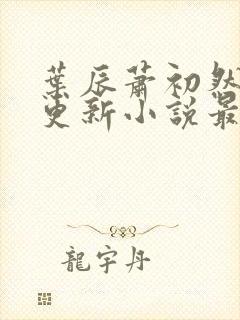 葉辰蕭初然
更新小說最
龍宇丹